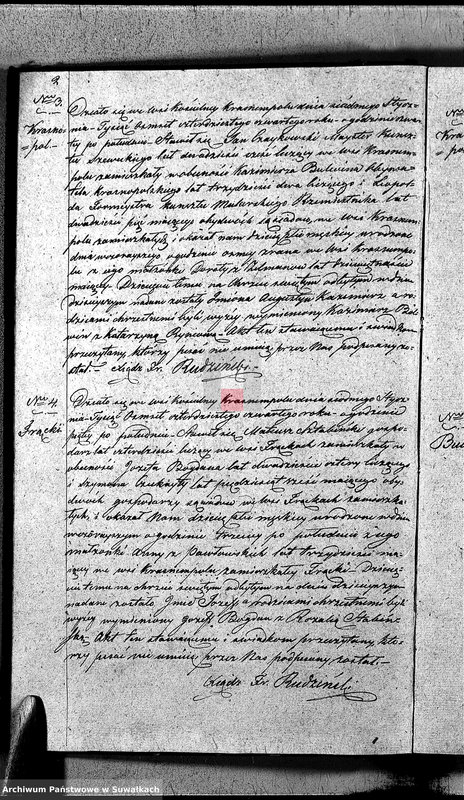 2.
Nro 3.
Krasno-
pol.
Działo się we wsi kościelney Krasnempolu dnia siódmego Stycz-
nia Tysiąc Ośmset czterdziestego czwartego roku o godzinie czwar-
tey po południu Stawił się Jan Czaykowski Mayster kunsz-
tu Szewckiego lat dwadzieścia sześć liczący we wsi Krasnem-
polu zamieszkały w obecności Kazimierza
krasnopolskiego lat trzydzieści dwa liczącego i Leopol-
da kunsztu Mularskiego Rzemieślnika lat
dwadzieścia pięć mającego obydwóch sąsiadów we wsi Krasnem-
polu zamieszkałych, i okazał nam dziecię płci męskiey urodzone
dnia wczorayszego o godzinie ósmy zrana we wsi Krasnempo-
lu z jego małżonki Doroty z lat dziewiętnaście
maiący Dziecięciu temu na Chrzcie świętym odbytym w dniu
dzisieyszym nadane zostały Imiona Augustyn Kazimierz a ro-
dzicami chrzestnemi byli wyżey wymieniony Kazimierz
z Katarzyną Akt ten stawaiącemu i świadkom
przeczytany, którzy pisać nie umieią przez Nas podpisany zo-
stał. Xiądz Fr. Rudziński.
Nro 4.
Frącki
Działo się we wsi kościelney Krasnempolu dnia siódmego Stycz-
nia Tysiąc Ośmset czterdziestego czwartego roku o godzinie
piątey po południu Stawił się Mateusz gospo-
darz lat czterdzieści liczący we wsi Frąckach zamieszkały w
obecności Jozefa Bogdana lat dwadzieścia cztery liczącego
i Szymona lat pięćdziesiąt sześć maiącego oby-
dwóch gospodarzy sąsiadów we wsi Frąckach zamieszka-
łych, i okazał Nam dziecię płci męskiey urodzone w dniu
wczorayszym o godzinie trzeciey po południu z jego
małżonki Anny z Pawłowskich lat trzydzieści ma-
iącey we wsi zamieszkałey Frącki. Dziecię-
ciu temu na chrzcie świętym odbytym na dniu dzisieyszym
nadane zostało Imie Jozef a rodzicami chrzestnemi byli
wyżey wymieniony Jozef Bogdan z Rozalią
Akt ten stawaiącemu i świadkom przeczytany, któ-
rzy pisać nie umieią przez Nas podpisany został.
Xiądz Fr. Rudziński
Nro
Kra
Nro
Bud
Archiwum Państwowe w Suwałkach